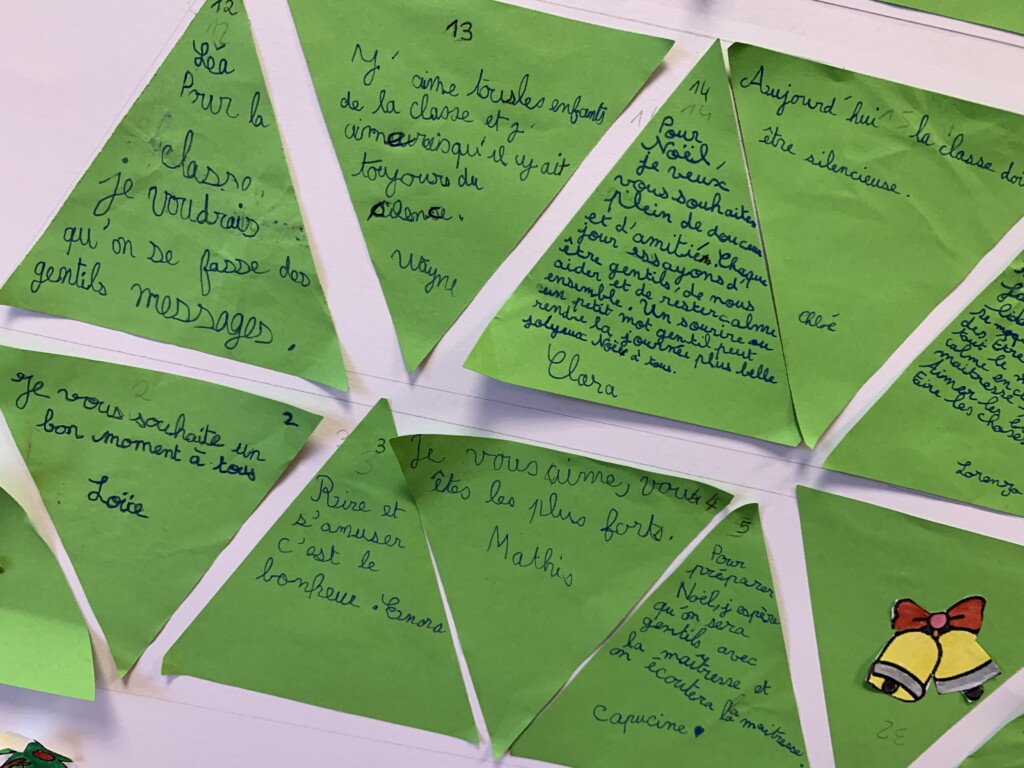 12
Léa
Pour la
classe,
je voudrais
qu'on se fasse des
gentils messages.
13
J' aime tous les enfants
de la classe et j'
aimerais qu'il y ait
toujours du
Wayne
14
14
Pour
Noël,
je veux
vous souhaiter
plein de douceur
et d'amitié. Chaque
jour essayons d'
être gentils, de nous
aider et de rester calme
ensemble. Un sourire ou
un petit mot gentil peut
rendre la journée plus belle
Joyeux Noël à tous.
Clara
15
Aujourd'hui la classe doit
être silencieuse.
Chloé
calme en
Aimer les
Lire les choses
Lorenzo
2
2
Je vous souhaite un
bon moment à tous
Loïce
3
3
Rire et
s'amuser
c'est le
bonheur. Enora
4
Je vous aime, vous
êtes les plus forts.
Mathis
5
Pour
préparer
Noël, j'espère
qu'on sera
gentils avec
la maîtresse et
on écoutera la maîtresse.
Capucine
32